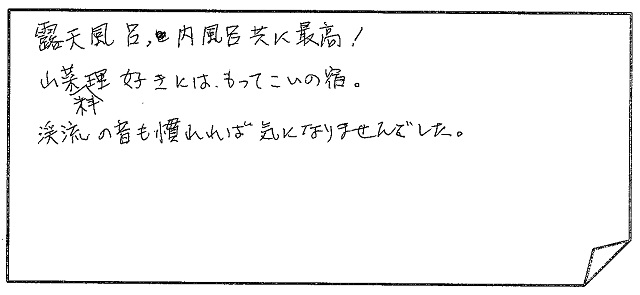 露天風呂,内風呂共に最高!
山菜料理好きには、もってこいの宿。
渓流の音も慣れれば気になりませんでした。